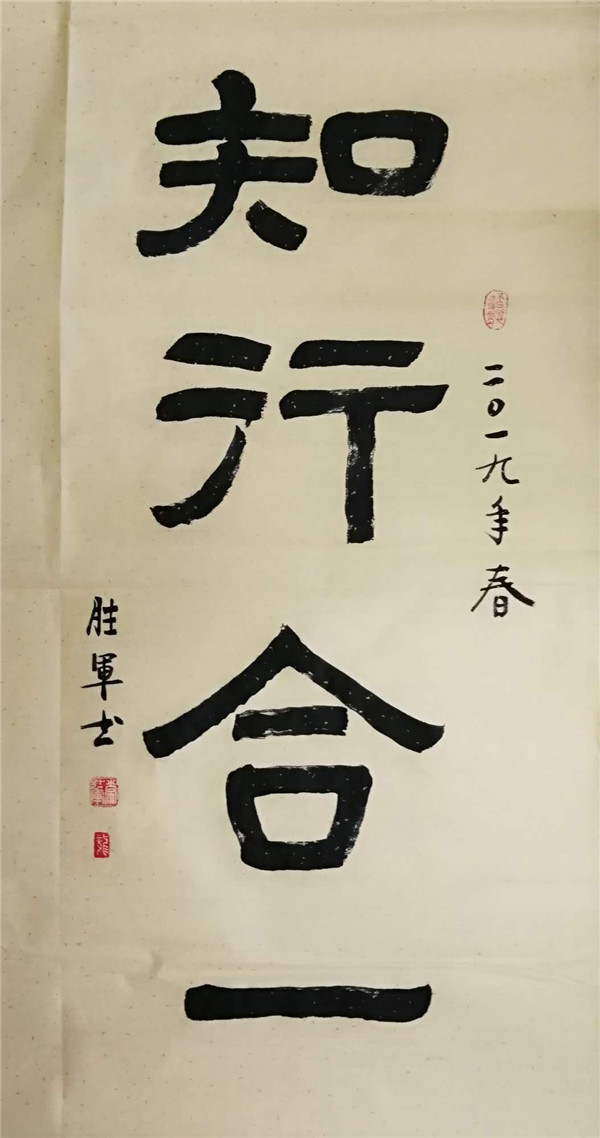 知行合一
二〇一九年春
胜军书